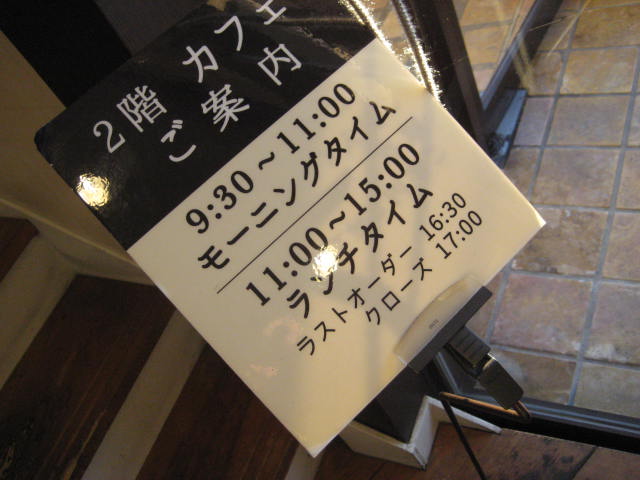 2階 カフェ
ご案内
9:30～11:00
モーニングタイム
11:00～15:00
ランチタイム
ラストオーダー 16:30
クローズ 17:00